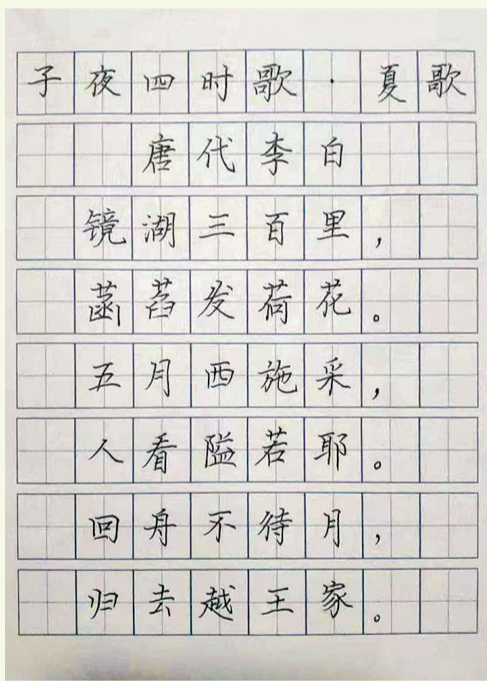 子夜四时歌·夏歌
唐代李白
镜湖三百里，
菡萏发荷花。
五月西施采，
人看隘若耶。
回舟不待月，
归去越王家。